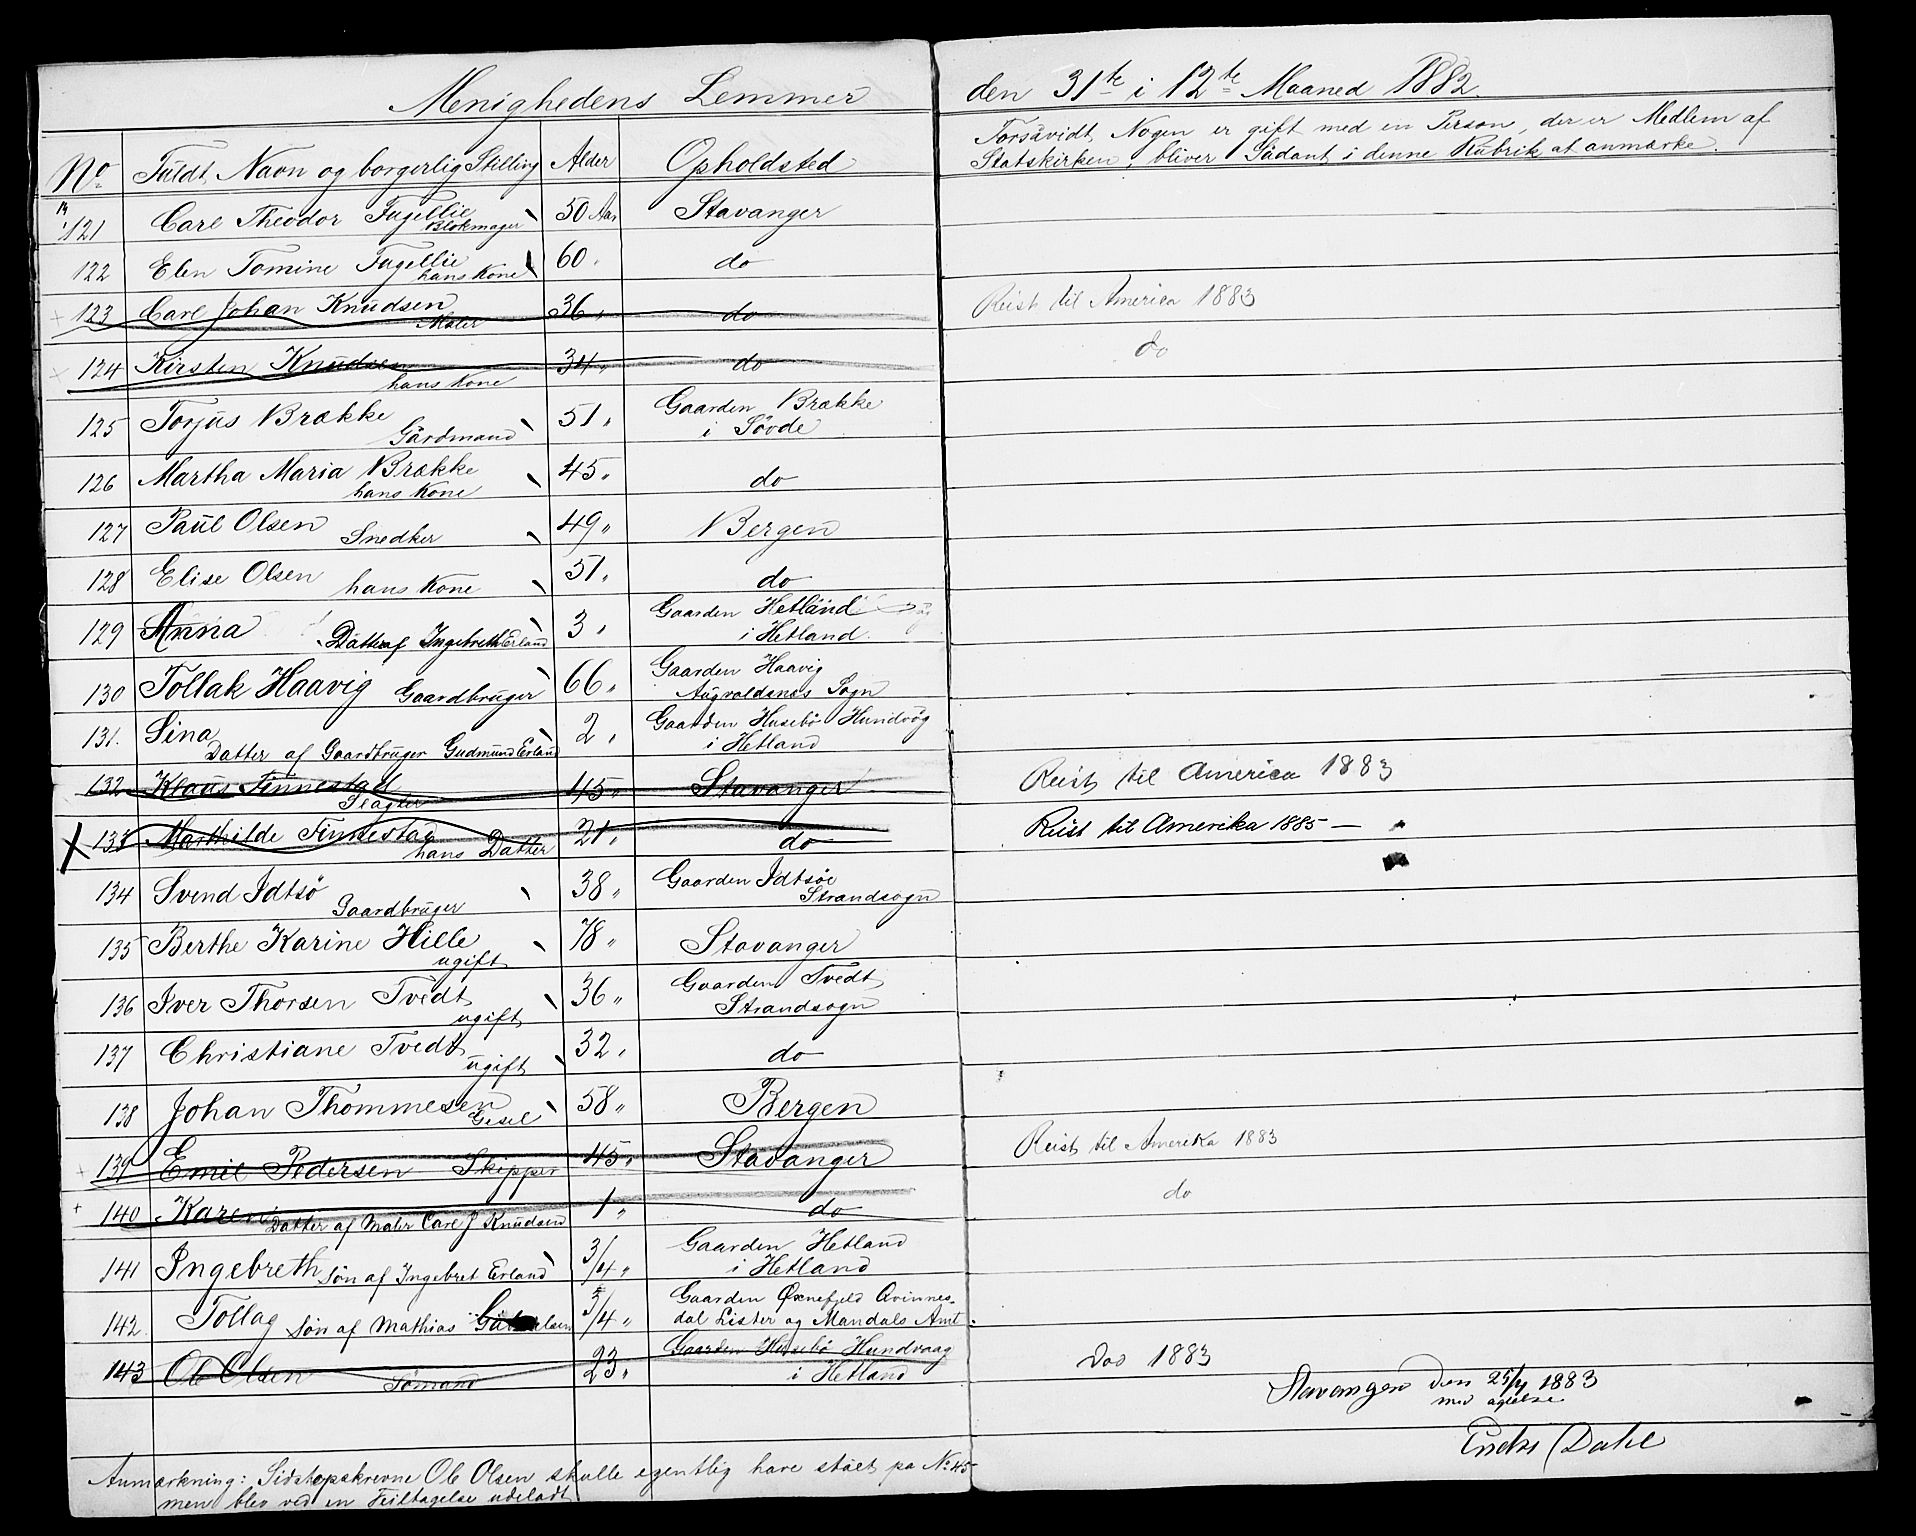 Menighedens Lemmer den 31te i 12te Maaned 1882.
No Fuldt Navn og borgerlig Stilling Alder Opholdsted Forsåvidt Nogen er gift med en Person, der er Medlem af
Statskirken, bliver Sådant i denne Rubrik at anmærke
121 Carl Theodor Fugellie Blokmager 50 Aar Stavanger
122 Elen Tomine Fugellie hans Kone 60 do
123 Carl Johan Knudsen Maler 36 " do Reist til America 1883
124 Kirsten Knudsen hans Kone 34 " do do
125 Torjus Brække Gårdmand 51 " Gaarden Brække
i Søvde
126 Martha Maria Brække hans Kone 45 " do
127 Paul Olsen Snedker 49 " Bergen
128 Elise Olsen hans Kone 51 " do
129 Anna Datter af Ingebreth Erland 3 " Gaarden Hetland
i Hetland
130 Tollak Haavig Gaardbruger 66 " Gaarden Haavig
Augvaldsnes Sogn
131. Sina Datter af Gaardbruger Gudmund Erland 2 " Gaarden Husebö Hundvåg
i Hetland
132 Klaus Finnestad Slagter 45 " Stavanger Reist til America 1883
133 Marthilde Finnestad hans Datter 21 " do Reist til Amerika 1885 —
134 Svend Idtsö Gaardbruger 38 " Gaarden Idtsöe
Strandsogn
135 Berthe Karine Hille ugift 78 " Stavanger
136 Iver Thorsen Tvedt ugift 36 " Gaarden Tvedt
Strandsogn
137 Christiane Tvedt ugift 32 " do
138 Johan Thommesen Gesel 58 " Bergen
139 Emil Pedersen Skipper 45 " Stavanger Reist til Amerika 1883
140 Karen Datter af Maler Carl J Knudsen 1 " do do
141 Ingebreth Søn af Ingebret Erland 3/4 " Gaarden Hetland
i Hetland
142. Tollag Søn af Mathias 3/4 " Gaarden Øxnefjeld Qvinnes-
dal Lister og Mandals Amt.
143 Ole Olsen Sömand 23 " Gaarden Husebö Hundvaag
i Hetland Död 1883
Stavanger den 25/4 1883
Dahl
Anmærkning: Sidstopskrevne Ole Olsen skulle egentlig have stået på No 45
men blev ved en Feiltagelse udeladt